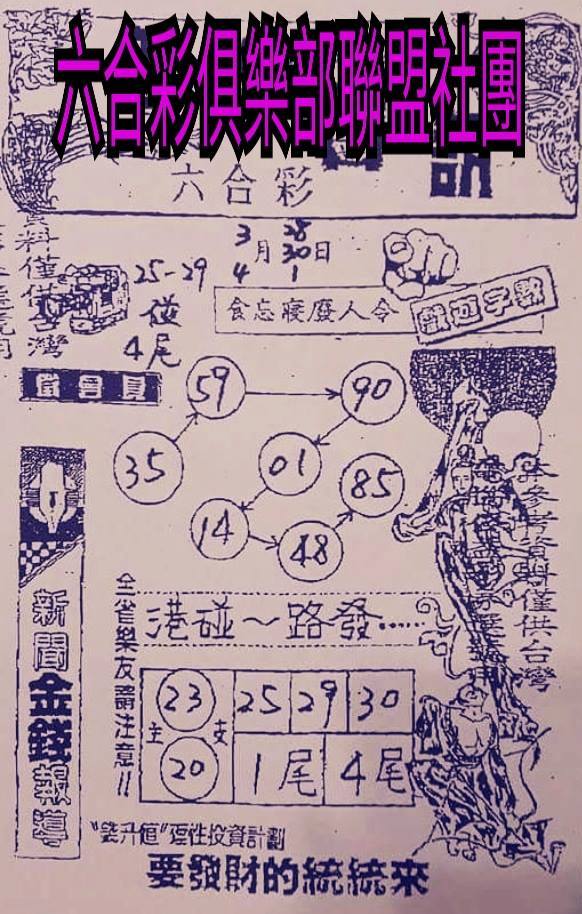 六合彩俱樂部聯盟社團
六合彩
3月28 30日
4 1
25-29
碰
4尾
食忘寢廢人令
數字遊戲
59
90
35
01
85
14
48
新聞金錢報導
全省樂友請注意!!
港碰～路發.....
主 支
23 25 29 30
20 1尾 4尾
要發財的統統來
僅供台灣